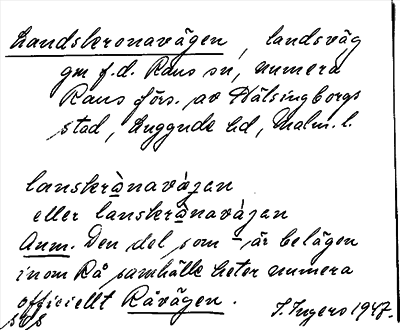 Landskronavägen, landsväg
gm f.d. Raus sn, numera
Raus förs. av Hälsingborgs
stad, Luggude hd, Malm. l.
lanskrònavä́gan
eller lanskrònavä́gan
Anm. Den del, som är belägen
inom Rå samhälle heter numera
officiellt Råvägen.
I. Ingers 1947.